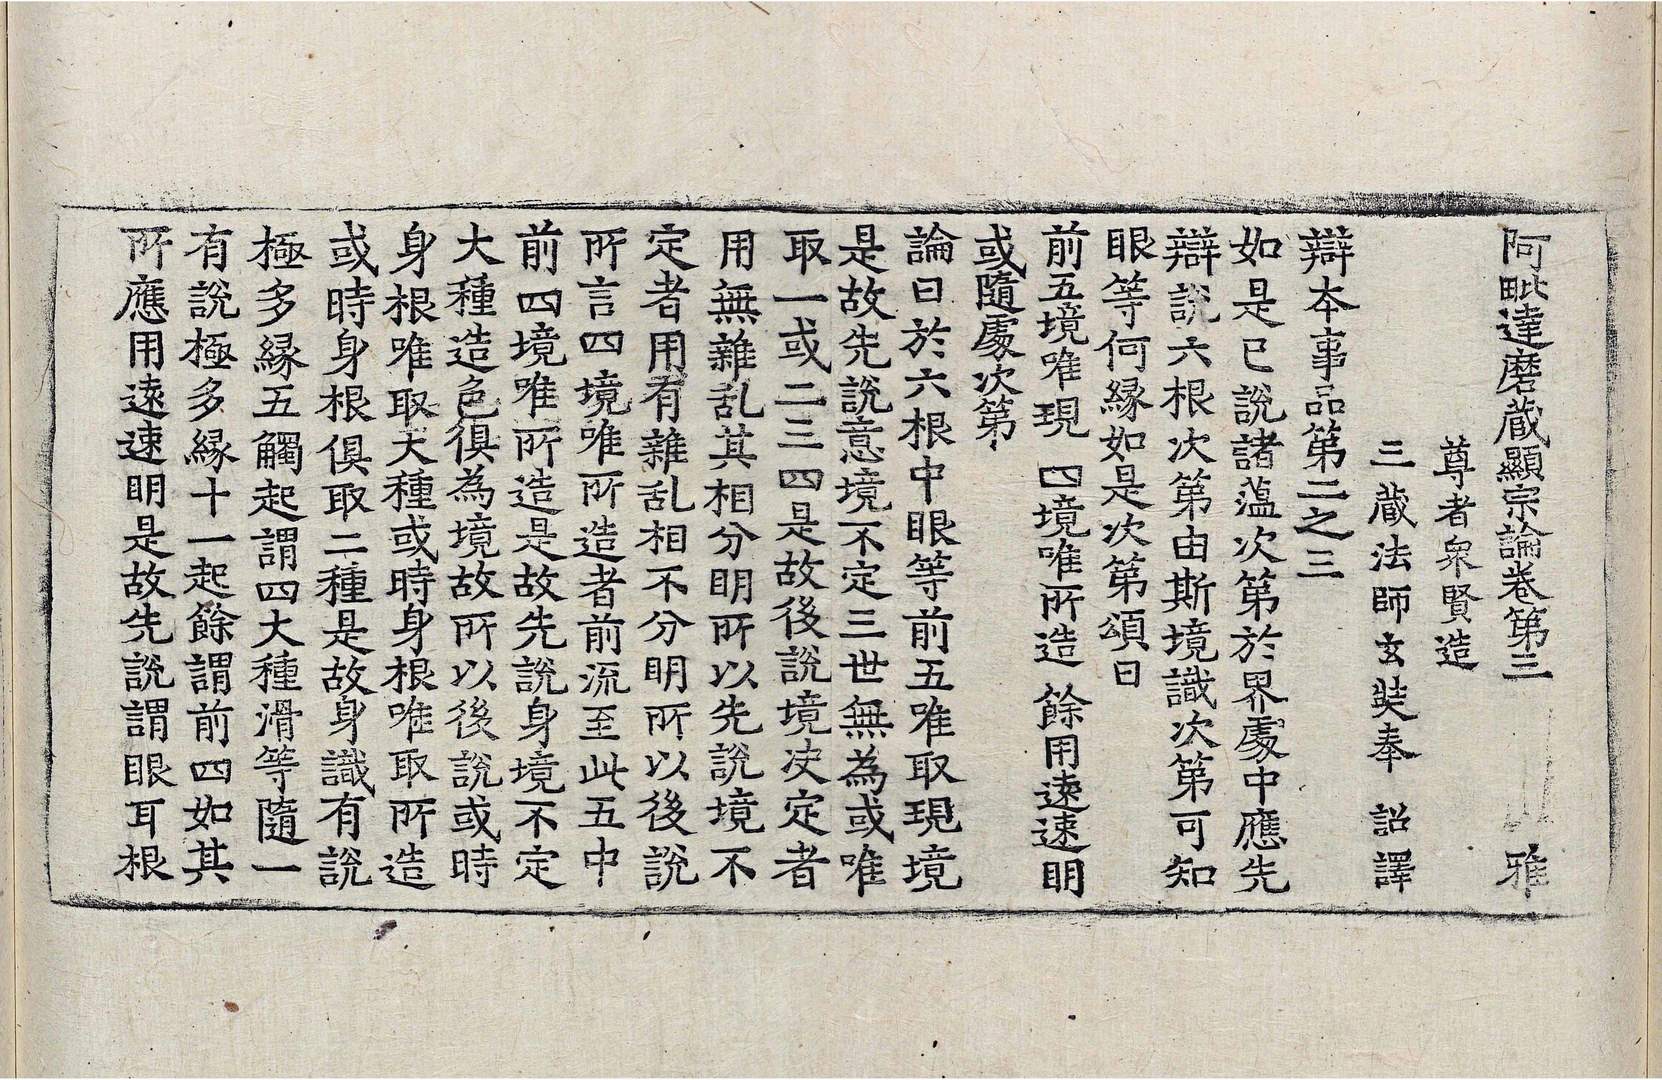 阿毗達磨藏顯宗論卷第三 雅
尊者衆賢造
三藏法師玄奘奉 詔譯
辯本事品第二之三
如是已說諸蘊次第於界處中應先
辯說六根次第由斯境識次第可知
眼等何緣如是次第頌曰
前五境唯現 四境唯所造 餘用遠速明
或隨處次第
論曰於六根中眼等前五唯取現境
是故先說意境不定三世無為或唯
取一或二三四是故後說境決定者
用無雜乱其相分明所以先說境不
定者用有雜乱相不分明所以後說
所言四境唯所造者前流至此五中
前四境唯所造是故先說身境不定
大種造色俱為境故所以後說或時
身根唯取大種或時身根唯取所造
或時身根俱取二種是故身識有說
極多緣五觸起謂四大種滑等隨一
有說極多緣十一起餘謂前四如其
所應用遠速明是故先說謂眼耳根